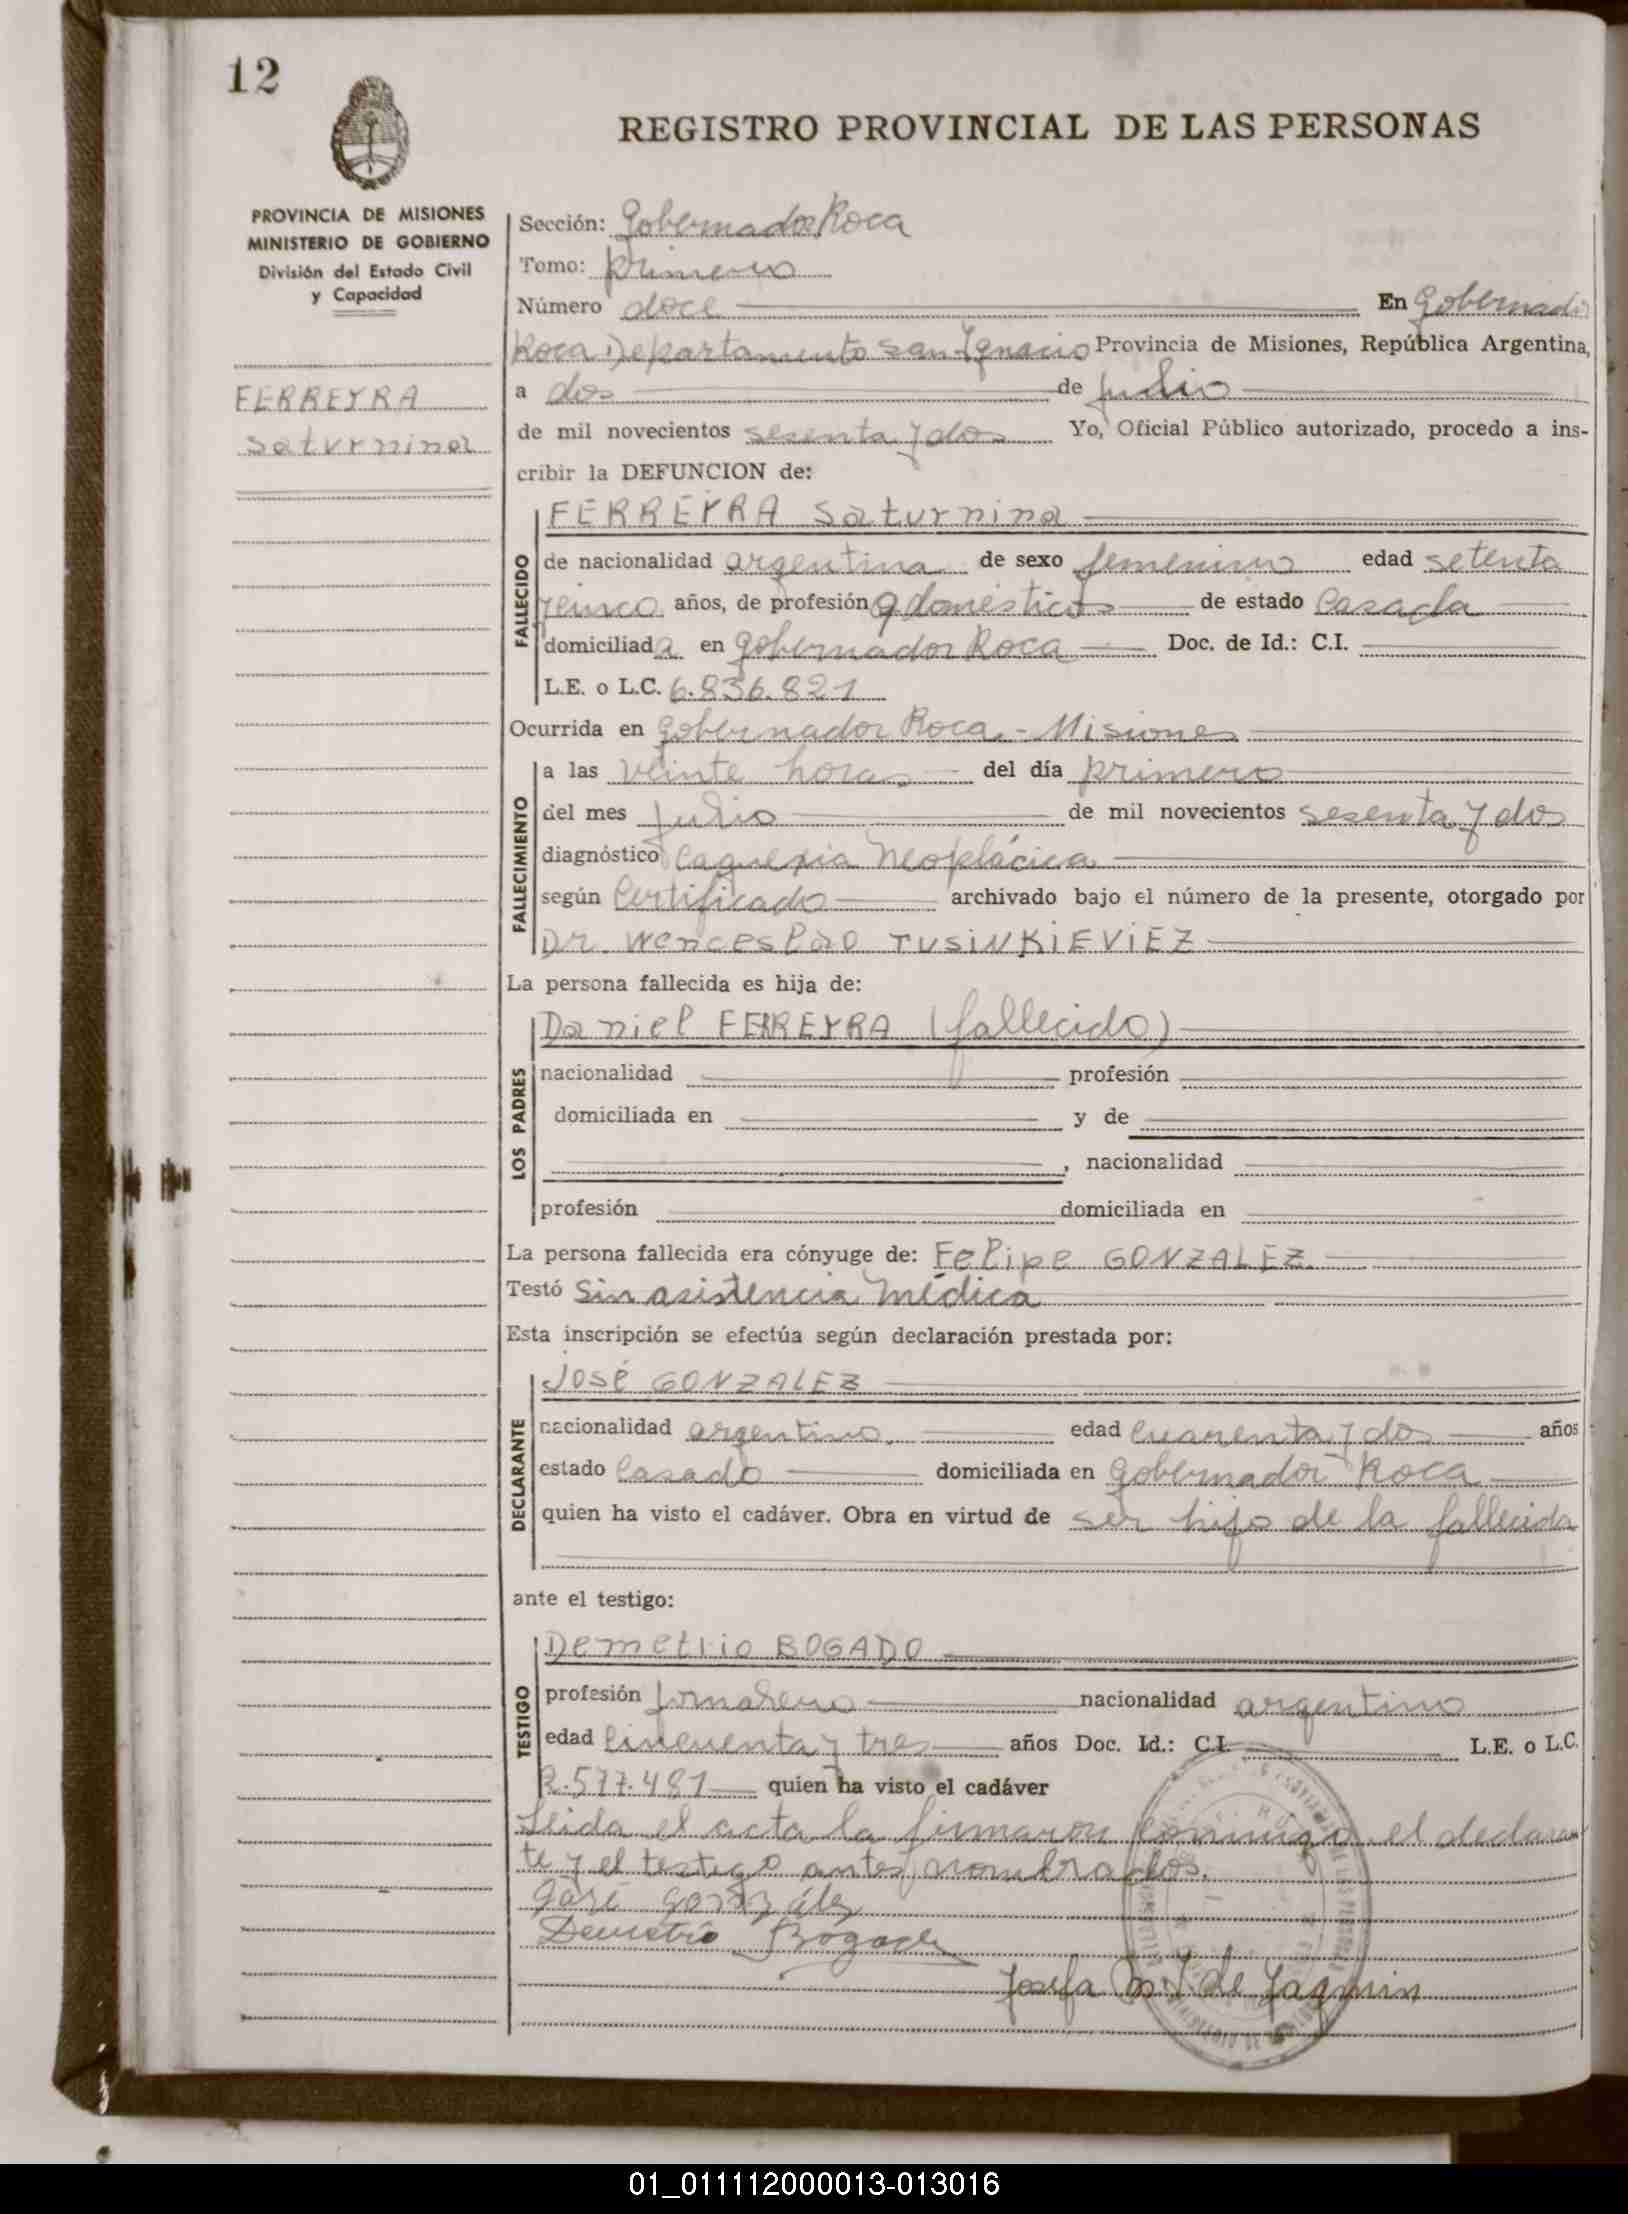 12
REGISTRO PROVINCIAL DE LAS PERSONAS
PROVINCIA DE MISIONES
MINISTERIO DE GOBIERNO
División del Estado Civil
y Capacidad
FERREYRA
Saturnina
Sección: Gobernador Roca
Tomo: primero
Número doce En Gobernador
Roca Departamento San Ignacio Provincia de Misiones, República Argentina,
a dos de julio
de mil novecientos sesenta y dos Yo, Oficial Público autorizado, procedo a ins-
cribir la DEFUNCION de:
FALLECIDO
FERREYRA Saturnina
de nacionalidad argentina de sexo femenino edad setenta
y cinco años, de profesión q. domésticos de estado Casada
domiciliada en Gobernador Roca Doc. de Id.: C.I.
L.E. o L.C. 6.836.821
Ocurrida en Gobernador Roca - Misiones
FALLECIMIENTO
a las veinte horas del día primero
del mes Julio de mil novecientos sesenta y dos
diagnóstico Caquexia Neoplácica
según Certificado archivado bajo el número de la presente, otorgado por
Dr. Wenceslao TUSINKIEVIEZ
La persona fallecida es hija de:
LOS PADRES
Daniel FERREYRA (fallecido)
nacionalidad profesión
domiciliada en y de
, nacionalidad
profesión domiciliada en
La persona fallecida era cónyuge de: Felipe GONZALEZ
Testó Sin asistencia Médica
Esta inscripción se efectúa según declaración prestada por:
DECLARANTE
José GONZALEZ
nacionalidad argentino edad Cuarenta y dos años
estado Casado domiciliada en Gobernador Roca
quien ha visto el cadáver. Obra en virtud de ser hijo de la fallecida
ante el testigo:
TESTIGO
Demetrio BOGADO
profesión Jornalero nacionalidad argentino
edad Cincuenta y tres años Doc. Id.: C.I. L.E. o L.C.
2.577.481 quien ha visto el cadáver
Leida el acta la firmaron conmigo el declaran
te y el testigo antes nombrados.
José González
Demetrio Bogado
Josefa M. J. de Jaqmin
01_011112000013-013016